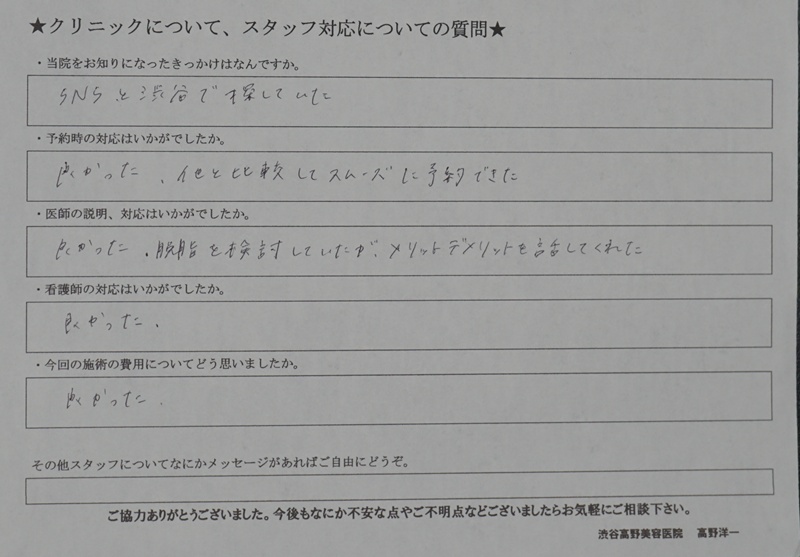 ★クリニックについて、スタッフ対応についての質問★
・当院をお知りになったきっかけはなんですか。
SNSと渋谷で探していた
・予約時の対応はいかがでしたか。
良かった、他と比較してスムーズに予約できた
・医師の説明、対応はいかがでしたか。
良かった。脱脂を検討していたが、メリットデメリットを話してくれた
・看護師の対応はいかがでしたか。
良かった。
・今回の施術の費用についてどう思いましたか。
良かった。
その他スタッフについてなにかメッセージがあればご自由にどうぞ。
ご協力ありがとうございました。今後もなにか不安な点やご不明点などございましたらお気軽にご相談下さい。
渋谷高野美容医院 高野洋一